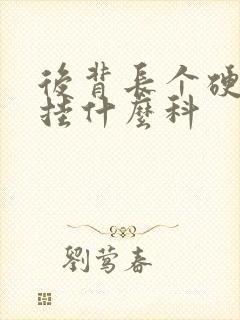 後背長个硬
挂什麽科
劉莺春